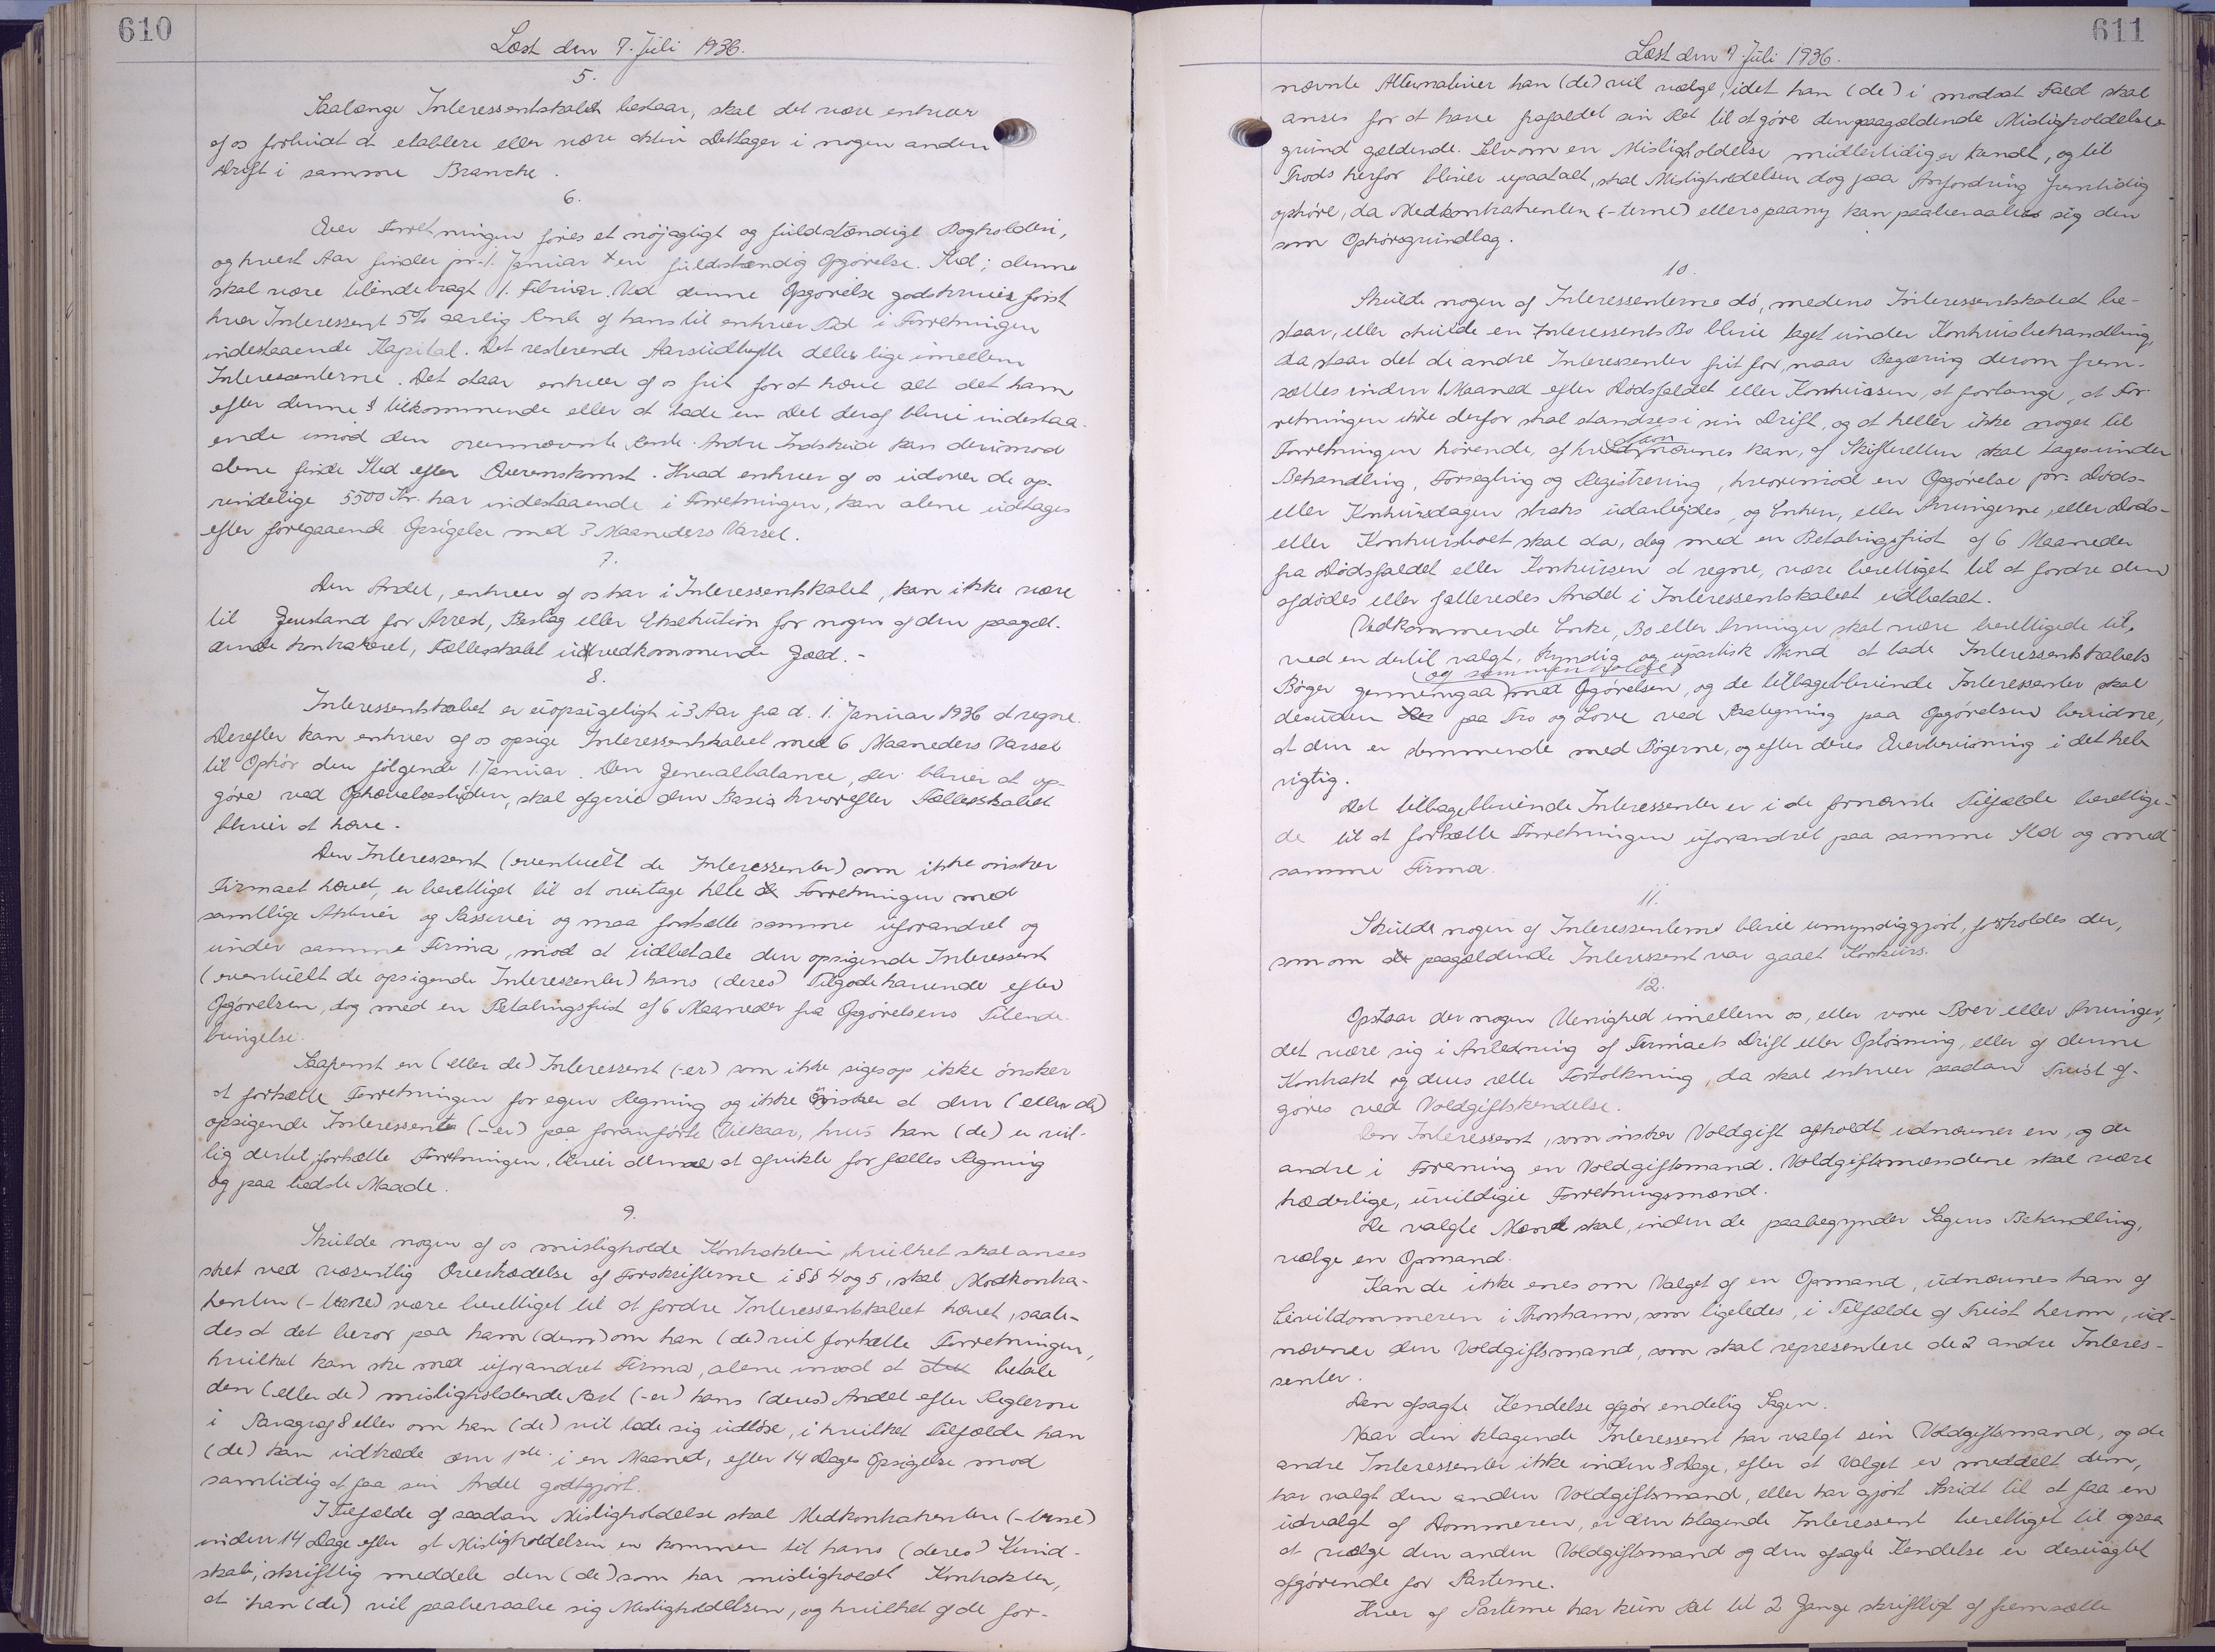 610
Læst den 7. Juli 1936.
5.
Saalænge Interessentskabet bestaar, skal det være enhver
af os forbudt at etablere eller være aktiv Deltager i nogen anden
Drift i samme Branche.
6.
Over Forretningen føres et nøjagtigt og fuldstændigt Bogholderi,
og hvert Aar finder pr. 1. Januar en fuldstændig Opgørelse Sted; denne
skal være tilendebragt 1. Februar. Ved denne Opgørelse godskrives først
hver Interessent 5% aarlig Rente af hans til enhver Tid i Forretningen
indestaaende Kapital. Det resterende Aarsudbytte deles lige imellem
Interessenterne. Det staar enhver af os frit for at hæve alt det ham
efter denne § tilkommende eller at lade en Del deraf blive indestaa-
ende imod den ovennævnte Rente. Andre Indskud kan derimod
alene finde Sted efter Overenskomst. Hvad enhver af os udover de op-
rindelige 5500 Kr. har indestaaende i Forretningen, kan alene udtages
efter foregaaende Opsigelse med 3 Maaneders Varsel.
7.
Den Andel, enhver af os har i Interessentskabet, kan ikke være
til Genstand for Arrest, Beslag eller Eksekution for nogen af den paagæl-
dende Kontraheret, Fællesskabet uvedkommende Gæld.-
8.
Interessentskabet er uopsigeligt i 3 Aar fra d. 1. Januar 1936 at regne.
Derefter kan enhver af os opsige Interessentskabet med 6 Maaneders Varsel
til Ophør den følgende 1. Januar. Den Generalbalance, der bliver at op-
gøre ved Ophævelsestiden, skal afgive den Basis hvorefter Fællesskabet
bliver at hæve.
Den Interessent (eventuelt de Interessenter) som ikke ønsker
Firmaet hævet, er berettiget til at overtage hele Forretningen med
samtlige Aktiver og Passiver og maa fortsætte samme uforandret og
under samme Firma, mod at udbetale den opsigende Interessent
(eventuelt de opsigende Interessenter) hans (deres) Tilgodehavende efter
Opgørelsen, dog med en Betalingsfrist af 6 Maaneder fra Opgørelsens Tilende-
bringelse.
Saafremt en (eller de) Interessent (-er) som ikke siges op ikke ønsker
at fortsætte Forretningen for egen Regning og ikke ønsker at den (eller de)
opsigende Interessent (-er) paa foranførte Vilkaar, hvis han (de) er vil-
lig dertil, fortsætte Forretningen, bliver denne at afvikle for fælles Regning
og paa bedste Maade.
9.
Skulde nogen af os misligholde Kontrakten, hvilket skal anses
sket ved væsentlig Overtrædelse af Forskrifterne i §§ 4 og 5, skal Medkontra-
henten (-terne) være berettiget til at fordre Interessentskabet hævet, saale-
des at det beror paa ham (dem) om han (de) vil fortsætte Forretningen,
hvilket kan ske med uforandret Firma, alene imod at betale
den (eller de) misligholdende Part (-er) hans (deres) Andel efter Reglerne
i Paragraf 8 eller om han (de) vil lade sig udløse, i hvilket Tilfælde han
(de) kan udtræde den 1ste i en Maaned, efter 14 Dages Opsigelse mod
samtidig at faa sin Andel godtgjort.
I Tilfælde af saadan Misligholdelse skal Medkontrahenten (-terne)
inden 14 Dage efter at Misligholdelsen er kommen til hans (deres) Kund-
skab, skriftlig meddele den (de) som har misligholdt Kontrakten,
at han (de) vil paaberaabe sig Misligholdelsen, og hvilket af de for-
611
Læst den 7. Juli 1936.
nævnte Alternativer han (de) vil vælge, idet han (de) i modsat Fald skal
anses for at have frafaldet sin Ret til at gøre den paagældende Misligholdelses-
grund gældende. Selvom en Misligholdelse midlertidig er kendt, og til
Trods herfor bliver upaatalt, skal Misligholdelsen dog paa Anfordring fremtidig
ophøre, da Medkontrahenten (-terne) ellers paany kan paaberaabe sig den
som Ophørsgrundlag.
10.
Skulde nogen af Interessenterne dø, medens Interessentskabet be-
staar, eller skulde en Interessents Bo blive taget under Konkursbehandling,
da staar det de andre Interessenter frit for, naar Begæring derom frem-
sættes inden 1 Maaned efter Dødsfaldet eller Konkursen, at forlange, at For-
retningen ikke derfor skal standses i sin Drift, og at heller ikke noget til
Forretningen hørende, af hvad Navn nævnes kan, af Skifteretten skal tages under
Behandling, Forsegling og Registrering, hvorimod en Opgørelse pr. Døds-
eller Konkursdagen straks udarbejdes, og Enken, eller Arvingerne, eller Døds-
eller Konkursboet skal da, dog med en Betalingsfrist af 6 Maaneder
fra Dødsfaldet eller Konkursen at regne, være berettiget til at fordre den
afdødes eller falleredes Andel i Interessentskabet udbetalt.
Vedkommende Enke, Bo eller Arvinger skal være berettigede til,
ved en dertil valgt, kyndig og upartisk Mand at lade Interessentskabets
Bøger gennemgaa (og sammenholde) med Opgørelsen, og de tilbageblivende Interessenter skal
desuden paa Tro og Love ved Paategning paa Opgørelsen bevidne,
at den er stemmende med Bøgerne, og efter deres Overbevisning i det hele
rigtig.
Det tilbageblivende Interessenter er i de fornævnte Tilfælde berettige-
de til at fortsætte Forretningen uforandret paa samme Sted og med
samme Firma.
11.
Skulde nogen af Interessenterne blive umyndiggjort, forholdes der,
som om paagældende Interessent var gaaet Konkurs.
12.
Opstaar der nogen Uenighed imellem os, eller vore Boer eller Arvinger,
det være sig i Anledning af Firmaets Drift eller Opløsning, eller af denne
Kontrakt og dens rette Fortolkning, da skal enhver saadan Tvist af-
gøres ved Voldgiftskendelse.
Den Interessent, som ønsker Voldgift afholdt udnævner en, og de
andre i Forening en Voldgiftsmand. Voldgiftsmændene skal være
hæderlige, uvildige Forretningsmænd.
De valgte Mænd skal, inden de paabegynder Sagens Behandling,
vælge en Opmand.
Kan de ikke enes om Valget af en Opmand, udnævnes han af
Civildommeren i Thorshavn, som ligeledes, i Tilfælde af Tvist herom, ud-
nævner den Voldgiftsmand, som skal repræsentere de 2 andre Interes-
senter.
Den afsagte Kendelse afgør endelig Sagen.
Naar den klagende Interessent har valgt sin Voldgiftsmand, og de
andre Interessenter ikke inden 8 Dage, efter at Valget er meddelt dem,
har valgt den anden Voldgiftsmand, eller har gjort Skridt til at faa en
udvalgt af Dommeren, er den klagende Interessent berettiget til ogsaa
at vælge den anden Voldgiftsmand og den afsagte Kendelse er desuagtet
afgørende for Parterne.
Hver af Parterne har kun Ret til 2 Gange skriftligt at fremsætte